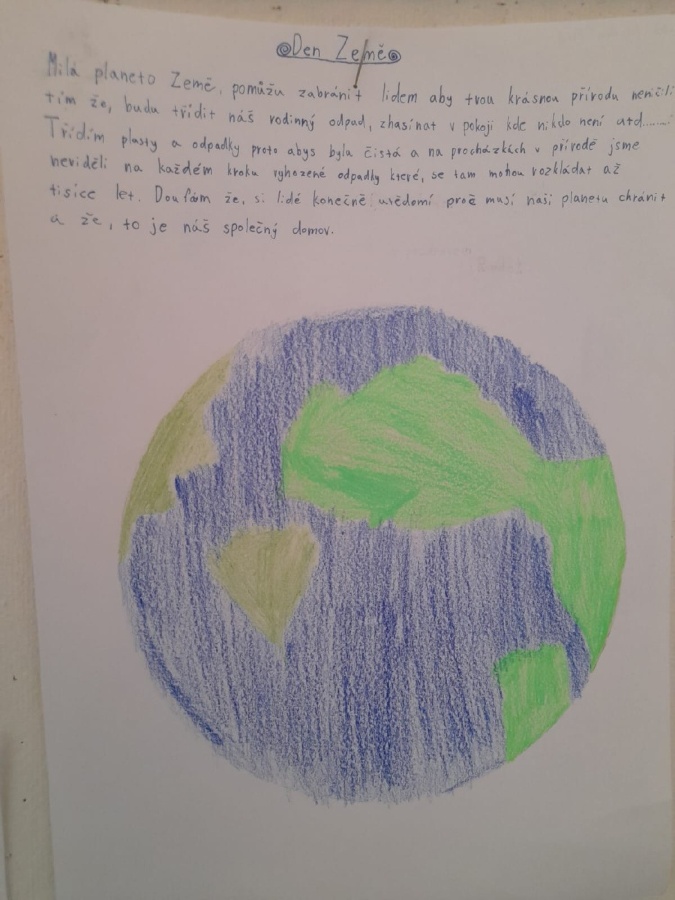 Den Země
Milá planeto Země, pomůžu zabránit lidem aby tvou krásnou přírodu neničili
tím že, budu třídit náš rodinný odpad, zhasínat v pokoji kde nikdo není atd.......
Třídím plasty a odpadky proto abys byla čistá a na procházkách v přírodě jsme
neviděli na každém kroku vyhozené odpadky které, se tam mohou rozkládat až
tisíce let. Doufám že, si lidé konečně uvědomí proč musí naší planetu chránit
a že, to je náš společný domov.